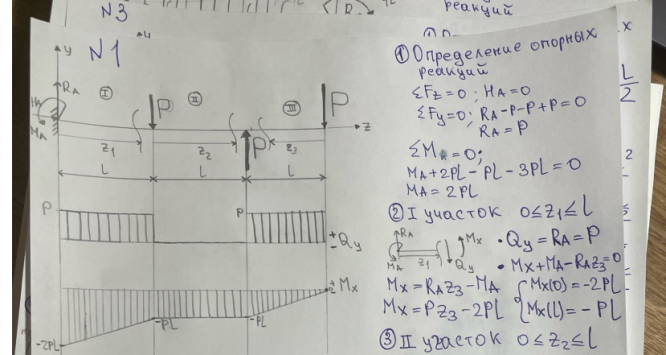 N3
реакций
N1
y
RA
HA
MA
I
II
III
P
P
P
z
z1
z2
z3
L
L
L
P
P
+
-
Qy
+
-
Mx
-2PL
-PL
-PL
① Определение опорных
реакций
ΣFz=0; HA=0
ΣFy=0; RA-P-P+P=0
RA=P
ΣMA=0;
MA+2PL-PL-3PL=0
MA=2PL
② I участок 0≤z1≤L
RA
MA
z1
Mx
Qy
• Qy=RA=P
• Mx+MA-RAz3=0
Mx=RAz3-MA
Mx=Pz3-2PL
{Mx(0)=-2PL
Mx(L)=-PL
③ II участок 0≤z2≤L
x
L
2
2